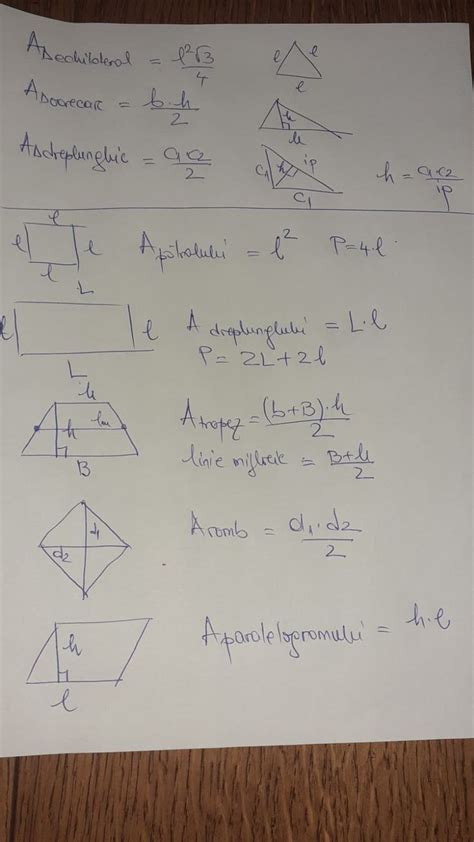 AΔechilateral = l²√3/4
l l
l
AΔoarecare = b·h/2
h
AΔdreptunghic = c₁c₂/2
c₁ h ip
c₁
h = c₁c₂/ip
l
l l
l
A pătratului = l² P=4·l
L
l l
L
A dreptunghiului = L·l
P= 2L+2l
h lm
B
A trapez = (b+B)·h/2
linie mijlocie =
d₁
d₂
A romb = d₁·d₂/2
h
l
A paralelogramului = h·l